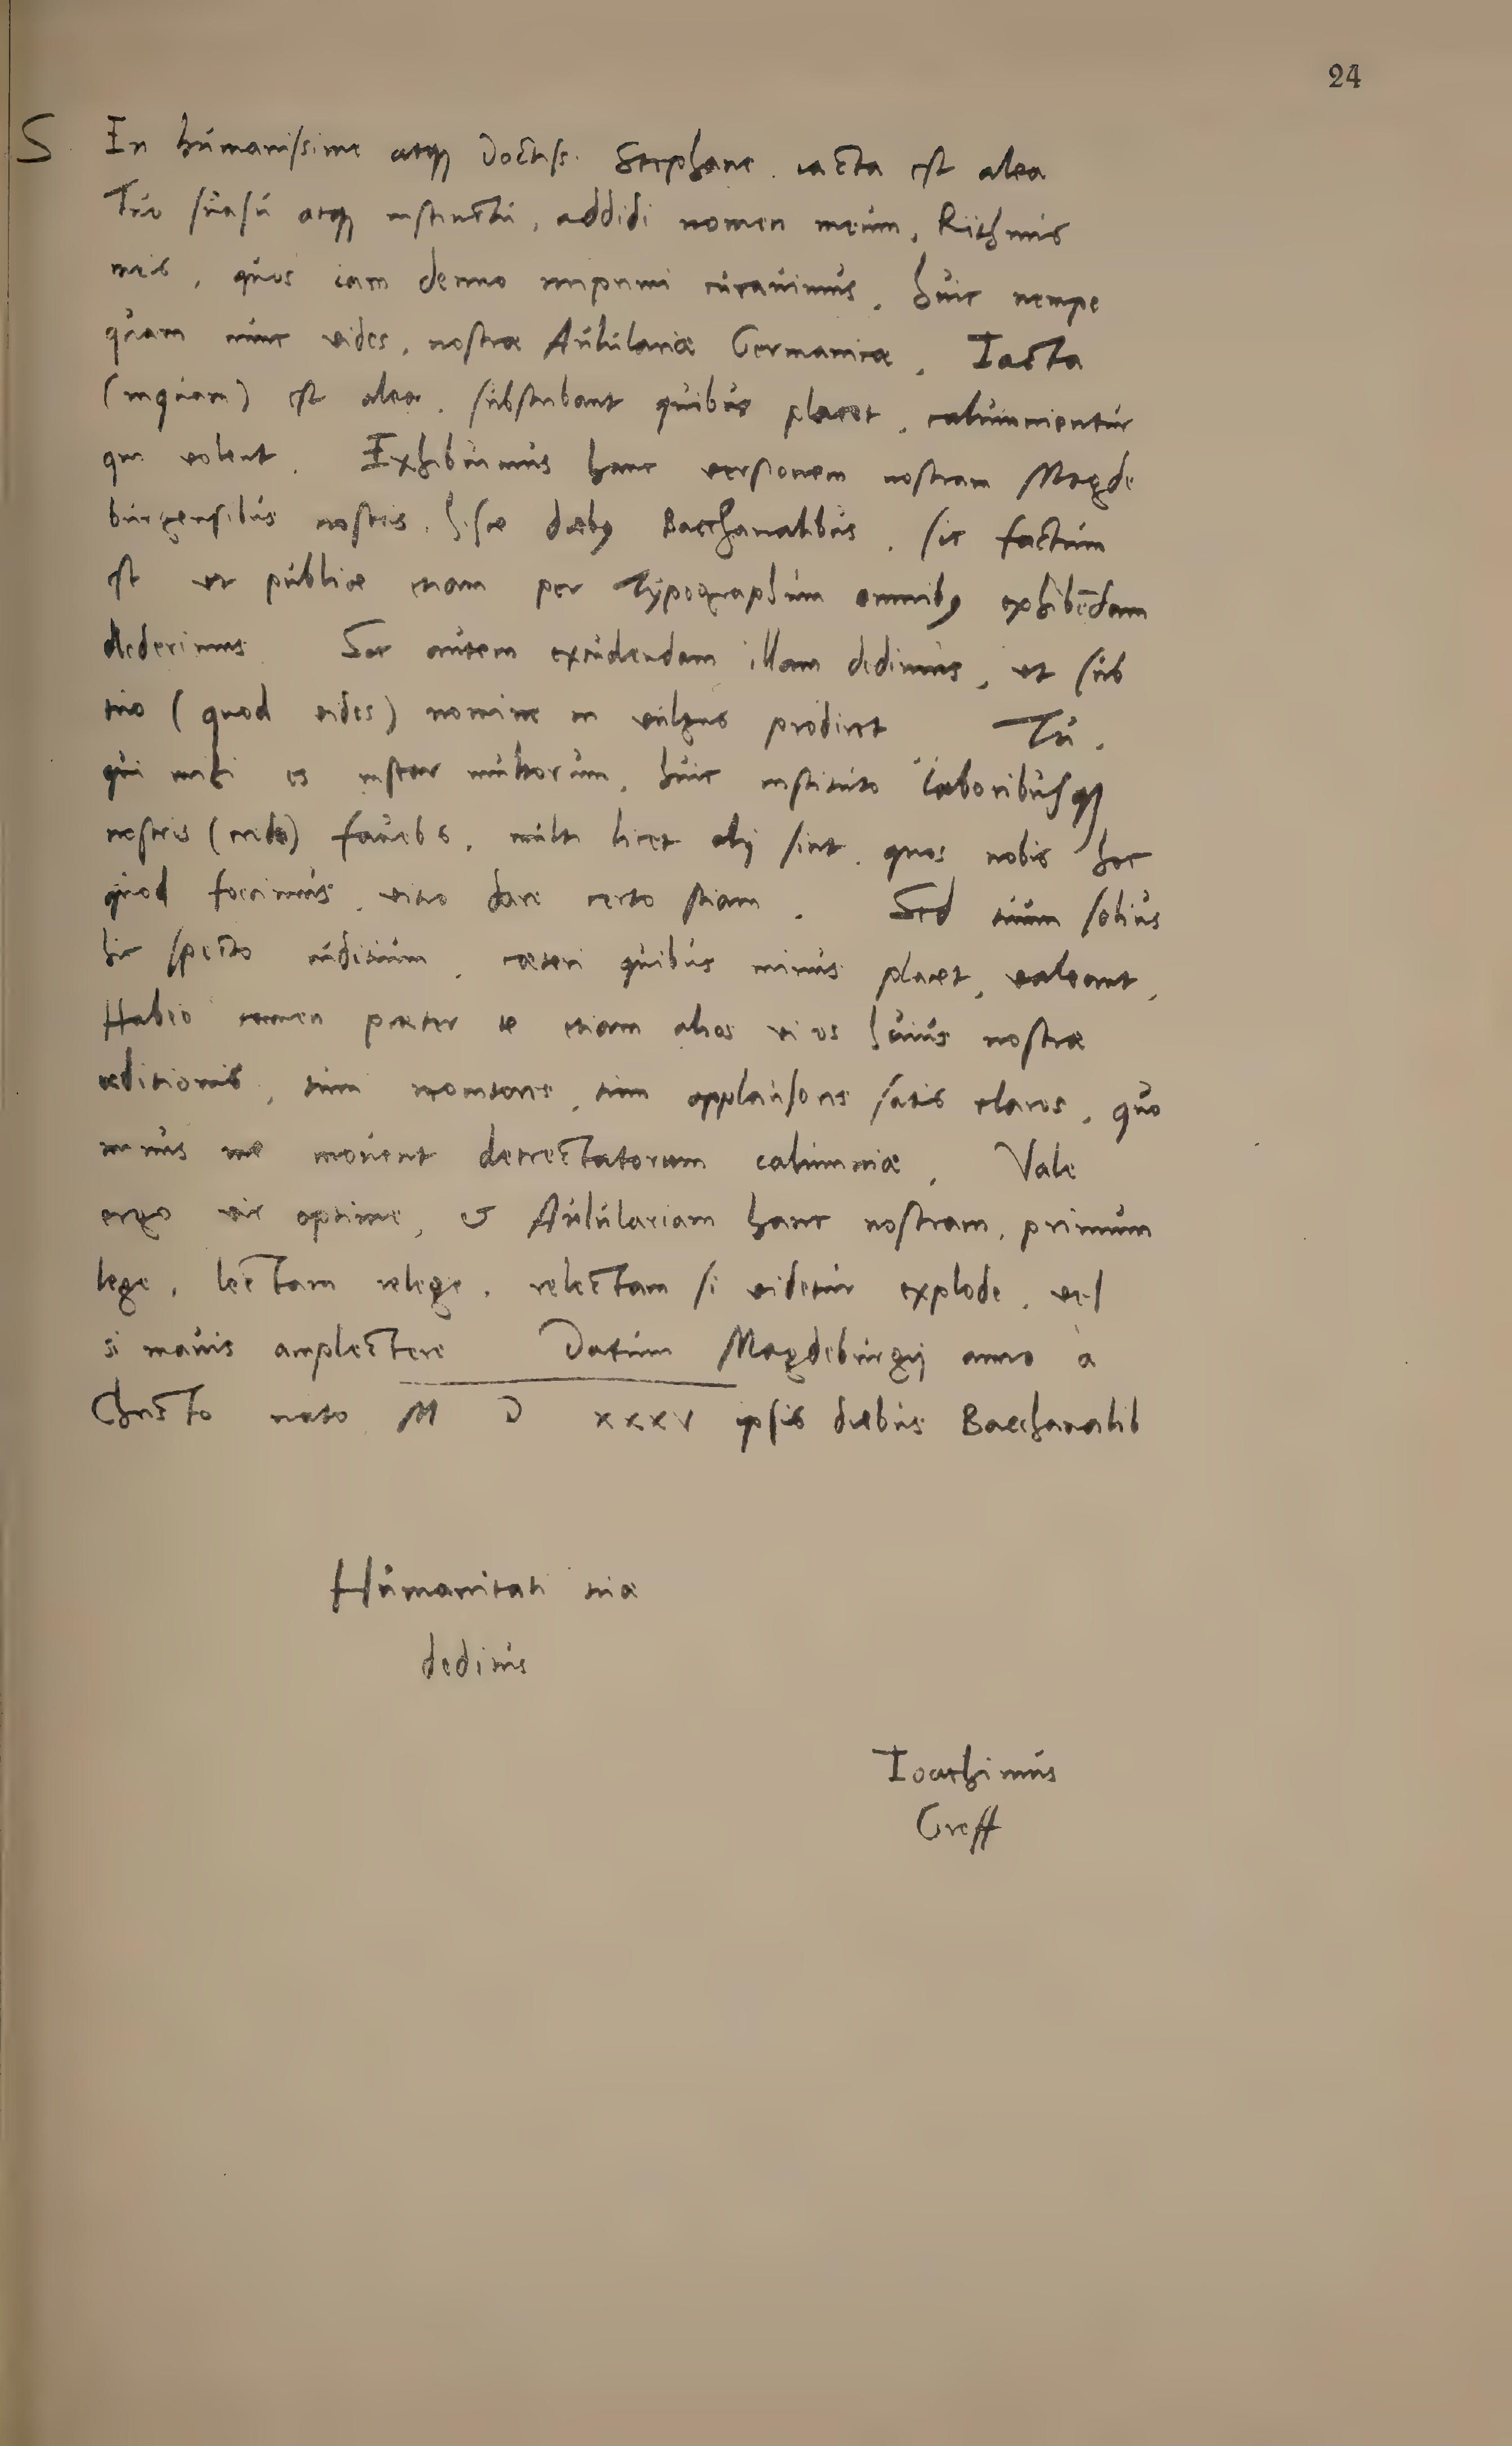 24
S En humanissime atq; doctiss. Stephane. iacta est alea
Tuo suasu atq; instinctu, addidi nomen meum, Rithmis
meis, quos iam denuo imprimi curauimus. huic nempe
quam nunc vides, nostrae Aululariae Germanicae. Iacta
(inquam) est alea. subscribant quibus placet, calumnientur
qui volent. Exhibuimus hanc versionem nostram Magde
burgensibus nostris. hisce dieb9 Bacchanalibus. sic factum
est ut publice etiam per Typographum omnib9 exhibēdam
dederimus Sic autem excudendam illam dedimus, ut sub
tuo (quod vides) nomine in vulgus prodiret Tu.
qui mihi es instar multorum, huic instituto laboribusq;
nostris (credo) fauebis, multi licet alij sint. quos nobis hoc
quod fecimus, vitio dare certo sciam. Sed tuum solius
hic specto iudicium, caeteri quibus minus placet, valeant,
Habeo tamen praeter te etiam alios viros huius nostrae
aeditionis, tum tum applausores satis claros, quo
minus me mouent detrectatorum calumniae, Vale
ergo vir optime, & Aululariam hanc nostram, primum
lege, lectam relege, relectam si videtur explode, vel
si mauis amplectere Datum Magdeburgij anno à
Christo nato M D xxxv ipsis diebus Bacchanalib
Humanitati tuae
deditus
Ioachimus
Greff